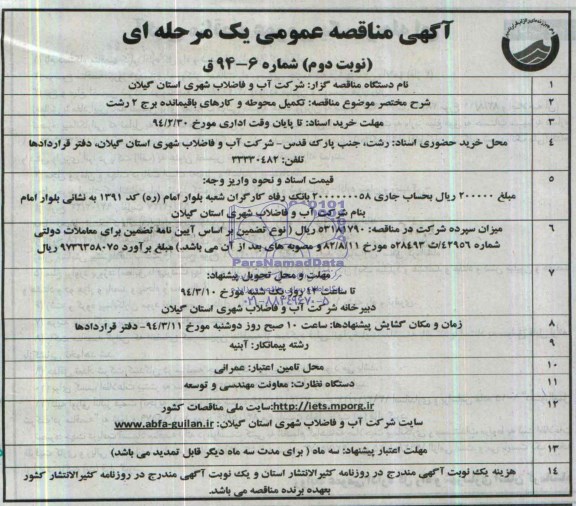 آگهی مناقصه عمومی یک مرحله ای
(نوبت دوم) شماره ۶-۹۴ ق
۱ نام دستگاه مناقصه گزار: شرکت آب و فاضلاب شهری استان گیلان
۲ شرح مختصر موضوع مناقصه: تکمیل محوطه و کارهای باقیمانده برج ۲ رشت
۳ مهلت خرید اسناد: تا پایان وقت اداری مورخ ۹۴/۲/۳۰
۴ محل خرید حضوری اسناد: رشت، جنب پارک قدس- شرکت آب و فاضلاب شهری استان گیلان، دفتر قراردادها
تلفن: ۳۳۳۳۰۴۸۲
۵ قیمت اسناد و نحوه واریز وجه:
مبلغ ۲۰۰۰۰۰ ریال بحساب جاری ۲۰۰۰۰۰۰۰۵۸ بانک رفاه کارگران شعبه بلوار امام (ره) کد ۱۳۹۱ به نشانی بلوار امام
بنام شرکت آب و فاضلاب شهری استان گیلان
۶ میزان سپرده شرکت در مناقصه: ۵۳۱۸۱۷۹۰ ریال ( نوع تضمین بر اساس آیین نامه تضمین برای معاملات دولتی
شماره ۴۲۹۵۶/ت ۲۸۴۹۳ه مورخ ۸۲/۸/۱۱ و مصوبه های بعد از آن می باشد.) مبلغ برآورد ۹۷۳۶۳۵۸۰۷۵ ریال
۷ مهلت و محل تحویل پیشنهاد:
تا ساعت ۱۳ روز یک شنبه مورخ ۹۴/۳/۱۰
دبیرخانه شرکت آب و فاضلاب شهری استان گیلان
۸ زمان و مکان گشایش پیشنهادها: ساعت ۱۰ صبح روز دوشنبه مورخ ۹۴/۳/۱۱- دفتر قراردادها
۹ رشته پیمانکار: آبنیه
۱۰ محل تامین اعتبار: عمرانی
۱۱ دستگاه نظارت: معاونت مهندسی و توسعه
۱۲ http://iets.mporg.ir:سایت ملی مناقصات کشور
سایت شرکت آب و فاضلاب شهری استان گیلان: www.abfa-guilan.ir
۱۳ مهلت اعتبار پیشنهاد: سه ماه ( برای مدت سه ماه دیگر قابل تمدید می باشد)
۱۴ هزینه یک نوبت آگهی مندرج در روزنامه کثیرالانتشار استان و یک نوبت آگهی مندرج در روزنامه کثیرالانتشار کشور
بعهده برنده مناقصه می باشد.
ParsNamadData
۰۲۱-۸۸۳۴۹۶۷۰-۵